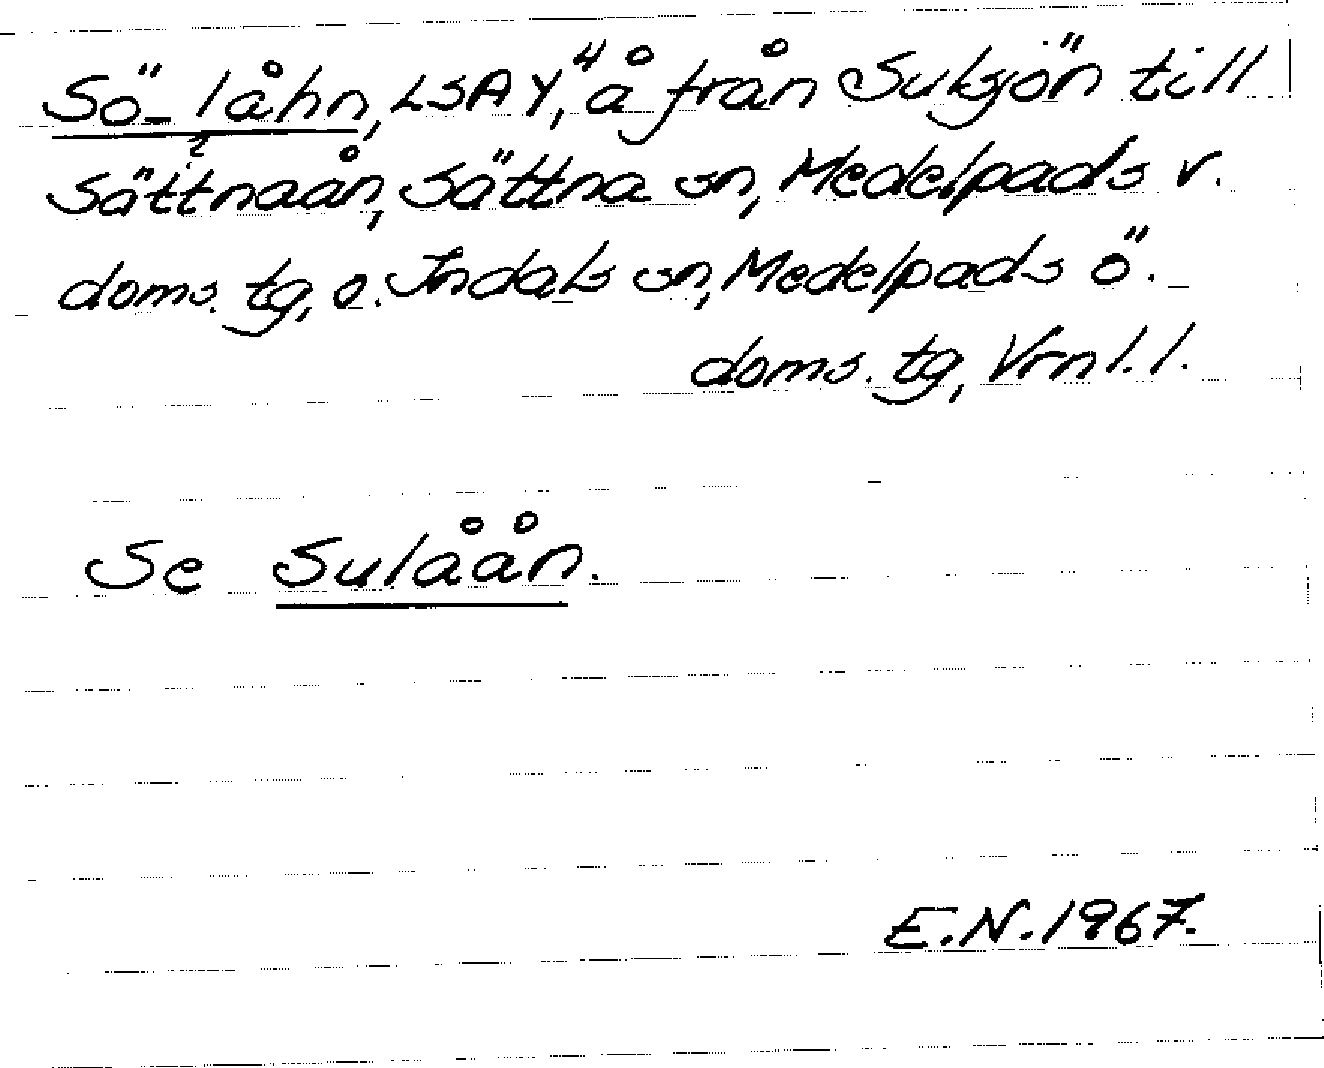 Sö-låhn, LSA Y,4 å från Sulsjön till
Sättnaån, Sättna sn, Medelpads v.
doms. tg, o. Indals sn, Medelpads ö.
doms. tg, Vrnl. l.
Se Sulåån.
E.N. 1967.